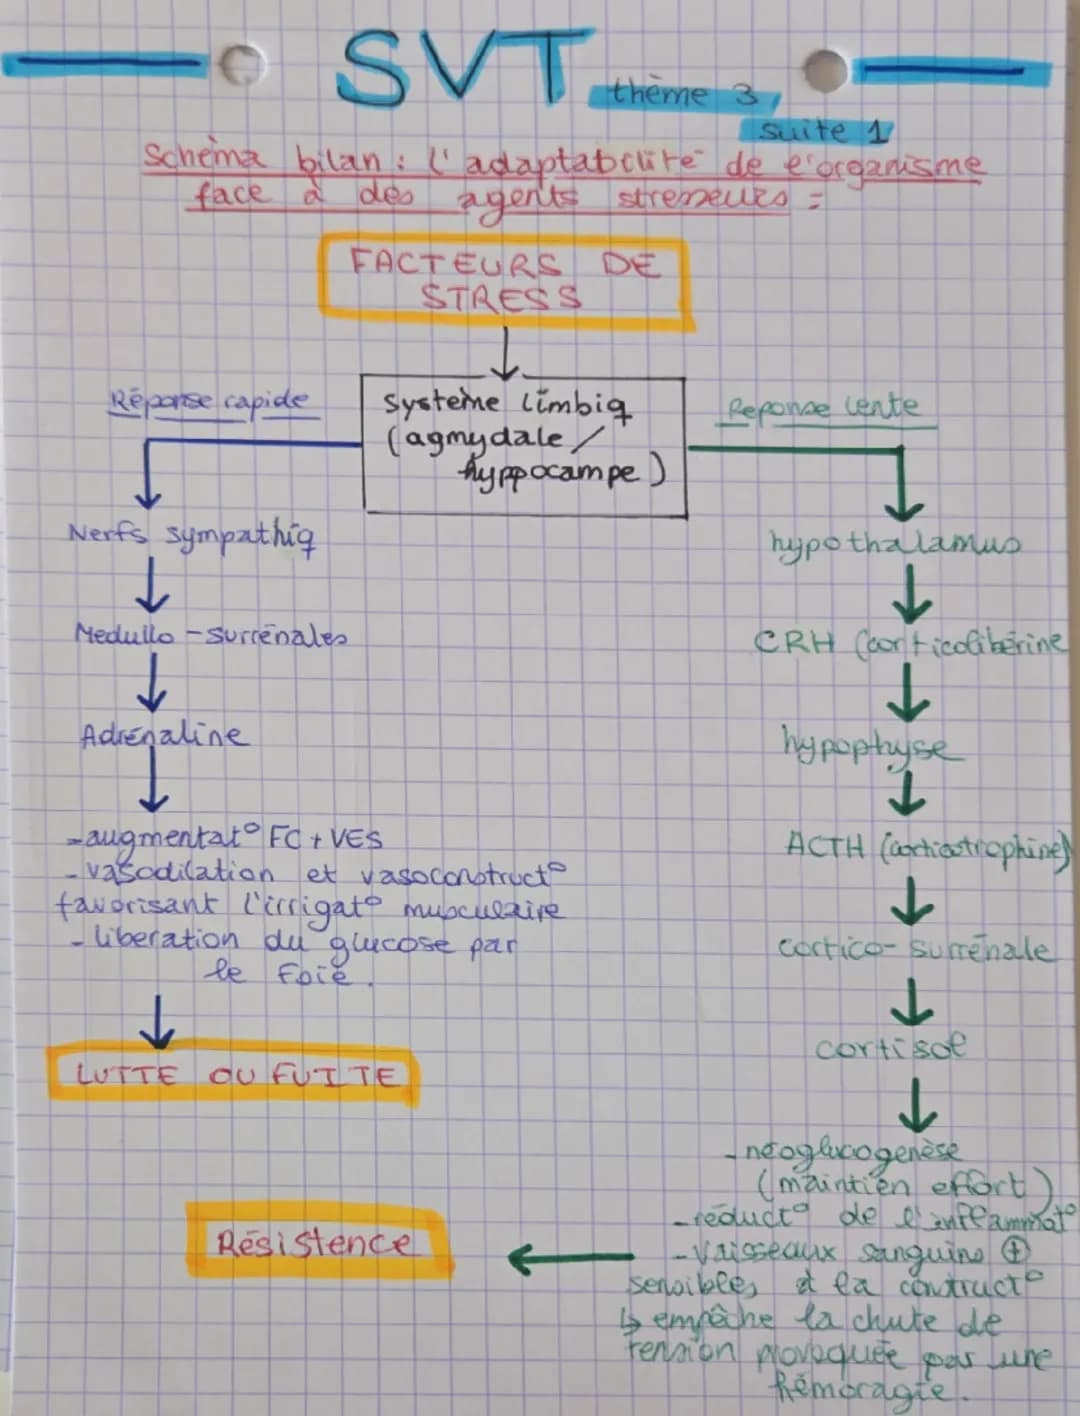 SVT
thème 3
suite 1
Schéma bilan : l'adaptabilité de l'organisme
face à des agents stresseurs :
FACTEURS DE
STRESS
Réponse rapide
Système limbiq
(agmydale /
hyppocampe)
Reponse lente
Nerfs sympathiq
Medullo-surrénales
Adrénaline
-augmentat° FC + VES
-vasodilation et vasoconstruct°
favorisant l'irrigat° musculaire
-libération du glucose par
le foie.
LUTTE OU FUITE
hypothalamus
CRH (corticolibérine
hypophyse
ACTH (corticotrophine)
cortico-surrénale
cortisol
-néoglucogenèse
(maintien effort)
-réduct° de l'inflammat°
-Vaisseaux sanguins ⊕
sensibles à la contruct°
↳ empêche la chute de
tension provoquée par une
hémoragie.
Résistence